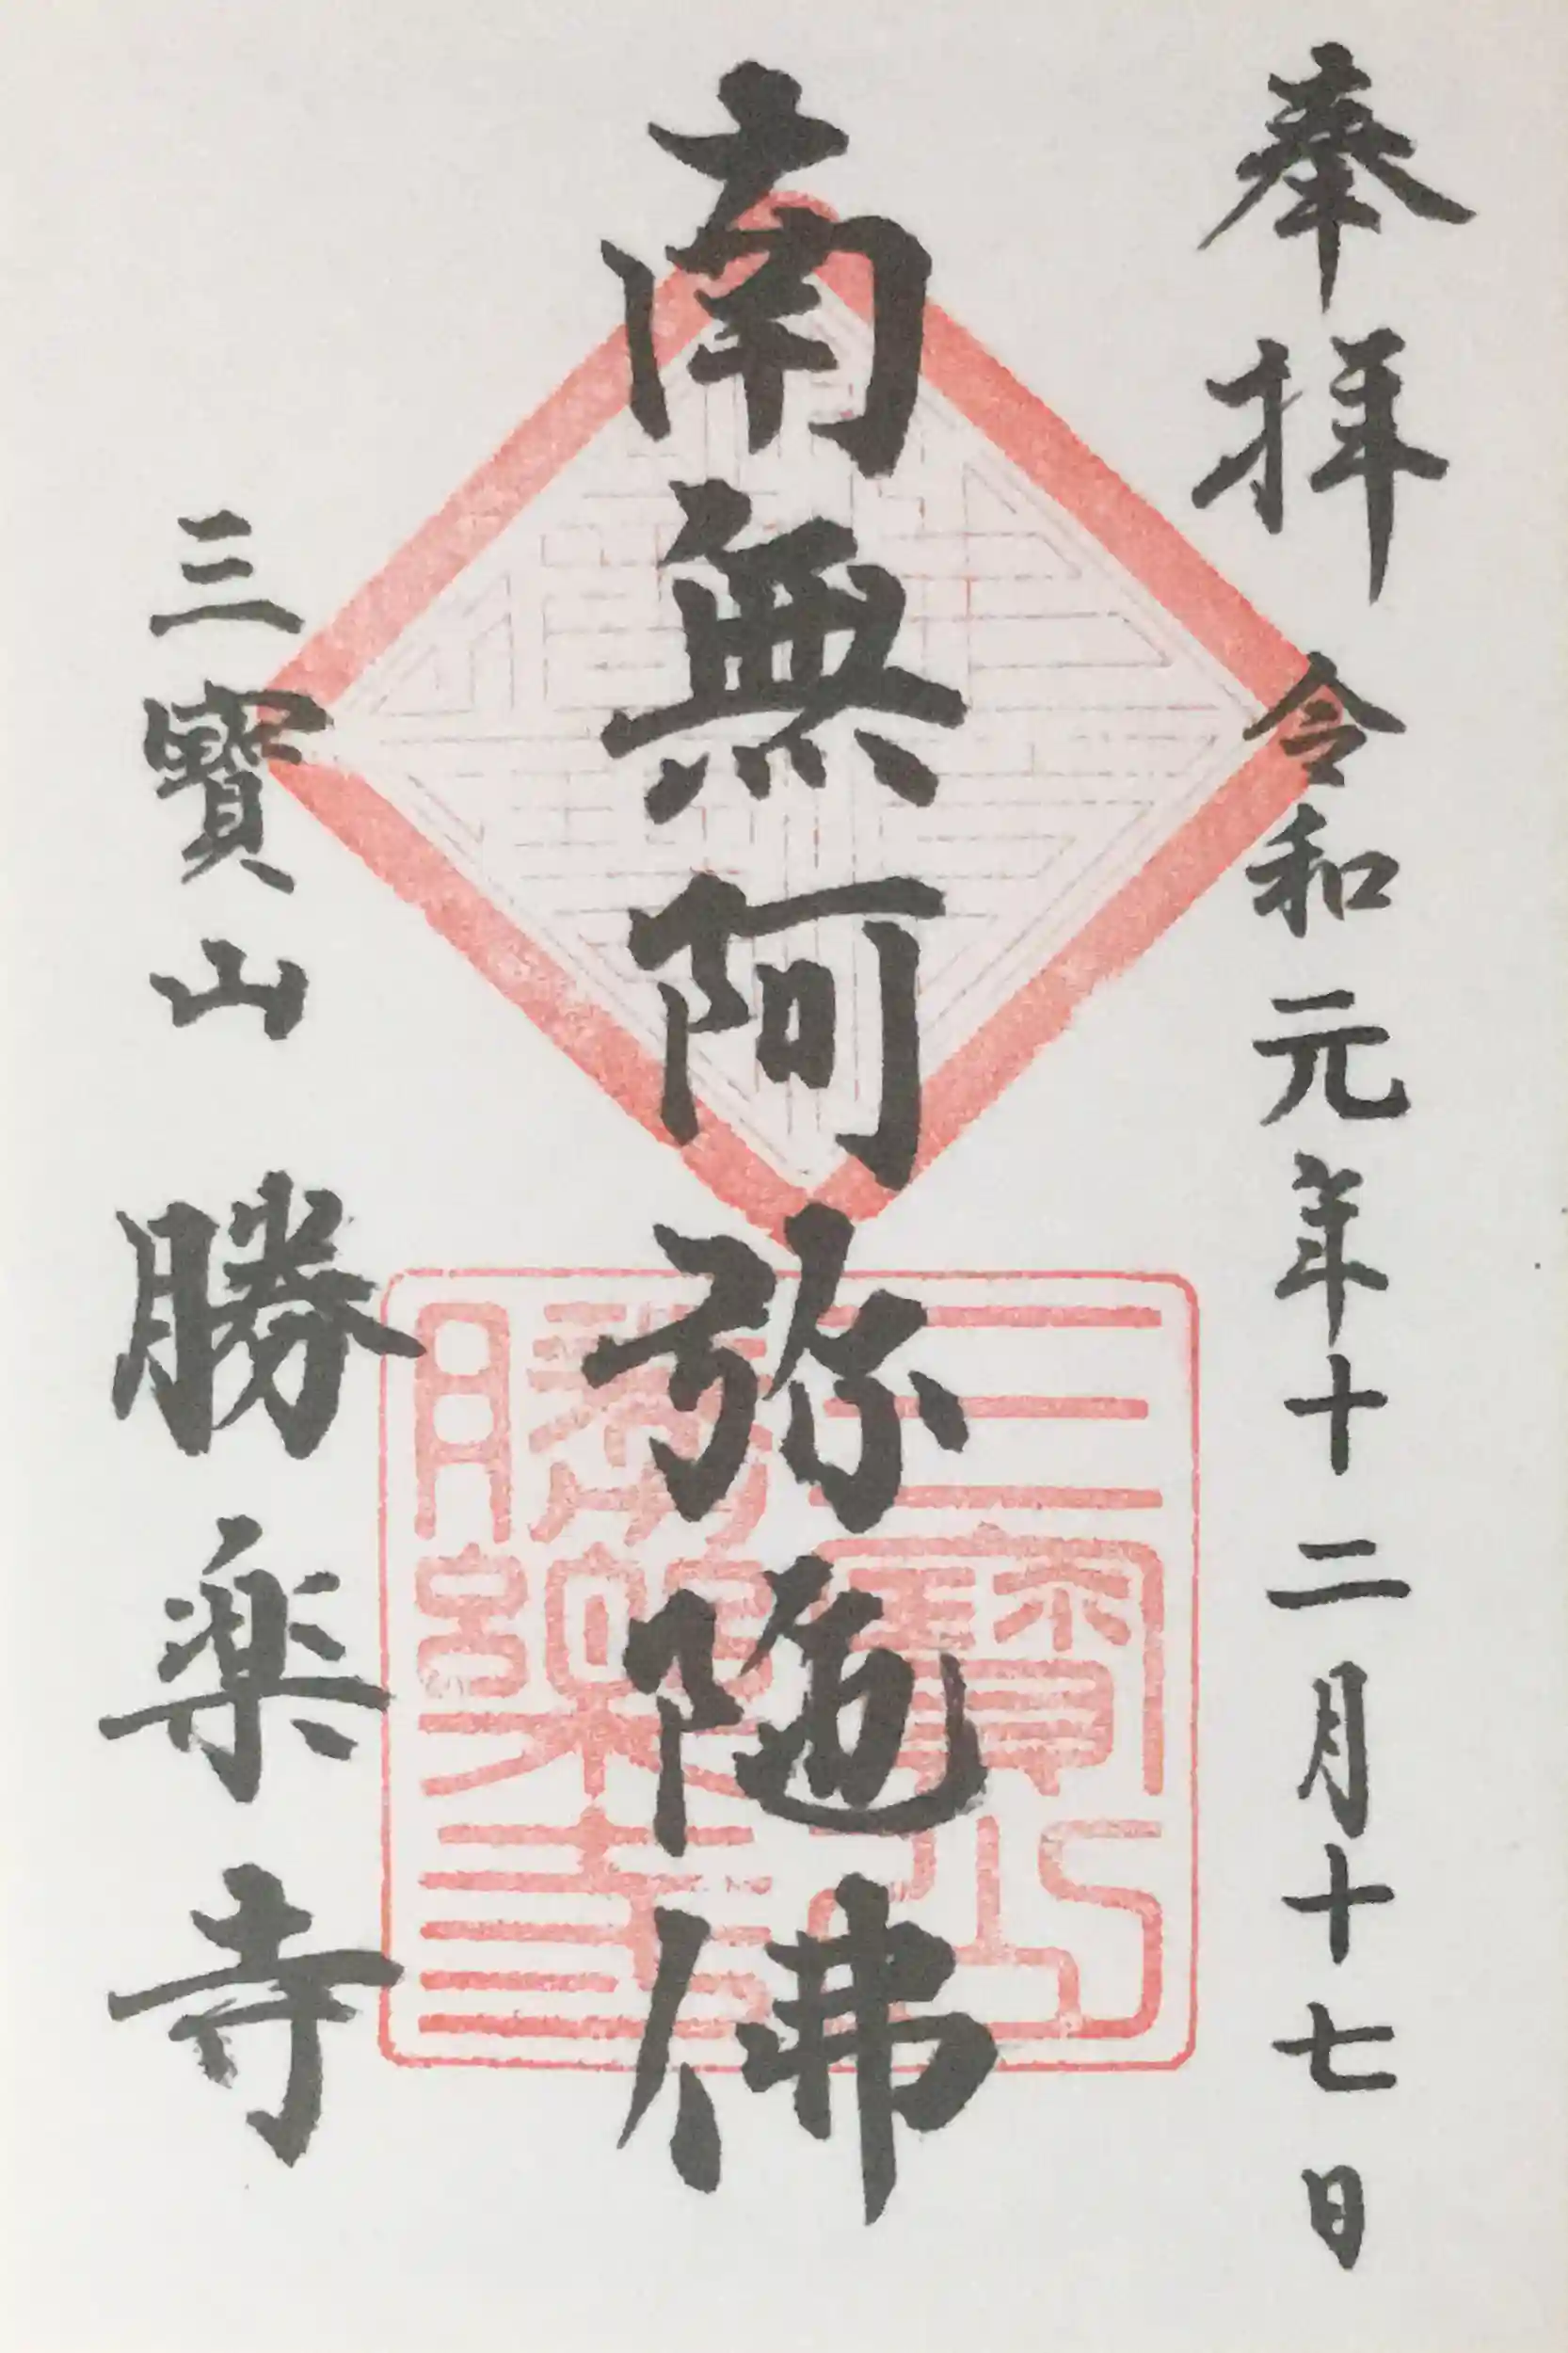 奉拝 令和元年十二月十七日
南無阿弥陀佛
三寳山 勝楽寺
三寶山
勝樂寺